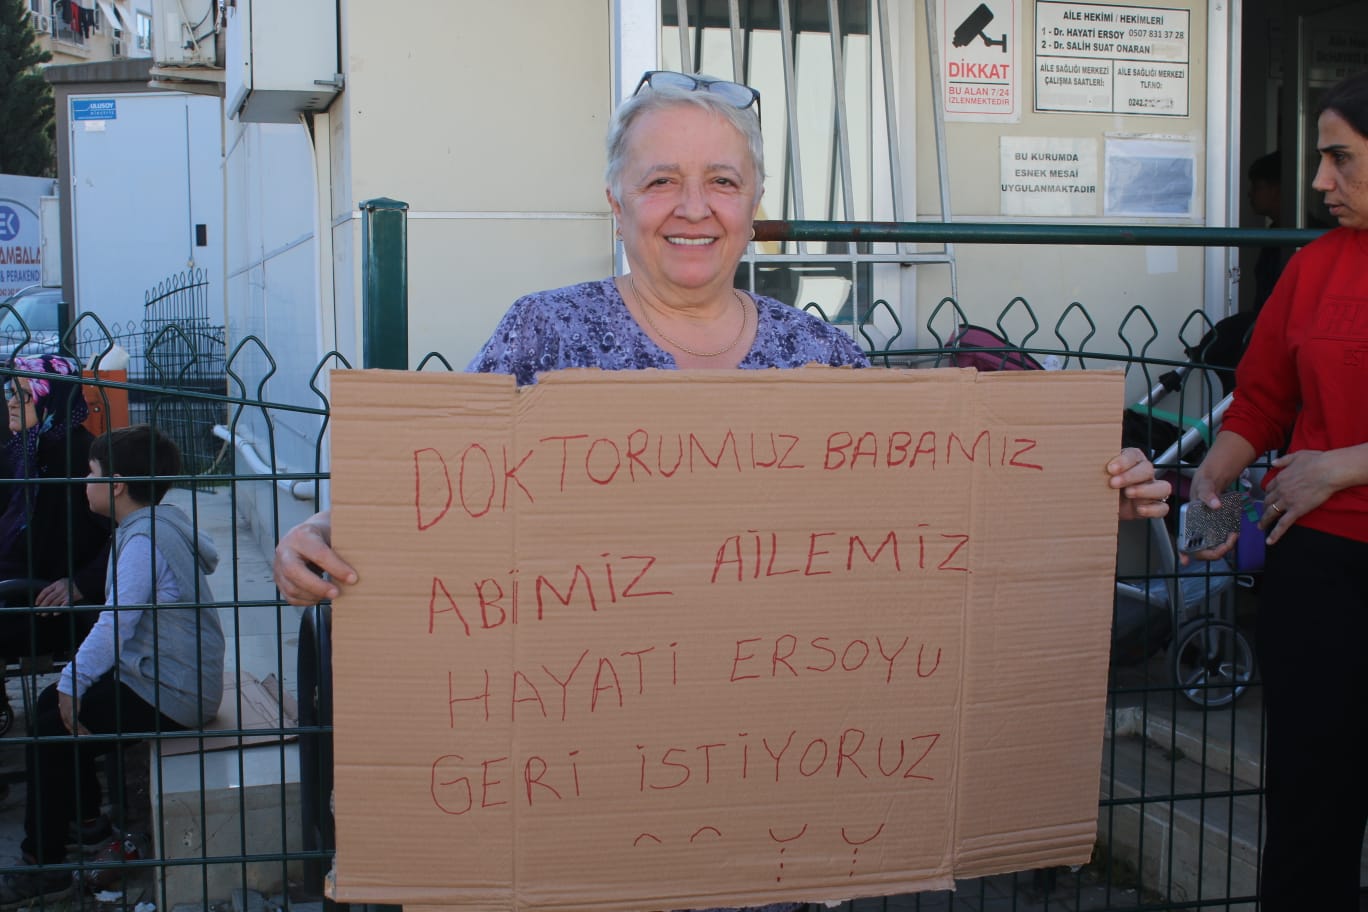 ULUSOY
electric
EK
AMBALA
& PERAKEND
DİKKAT
BU ALAN 7/24
İZLENMEKTEDİR
AİLE HEKİMİ / HEKİMLERİ
1 - Dr. HAYATİ ERSOY 0507 831 37 28
2 - Dr. SALİH SUAT ONARAN
AİLE SAĞLIĞI MERKEZİ
ÇALIŞMA SAATLERİ:
AİLE SAĞLIĞI MERKEZİ
TLF.NO:
0242
BU KURUMDA
ESNEK MESAİ
UYGULANMAKTADIR
DOKTORUMUZ BABAMIZ
ABİMİZ AİLEMİZ
HAYATİ ERSOYU
GERİ İSTİYORUZ